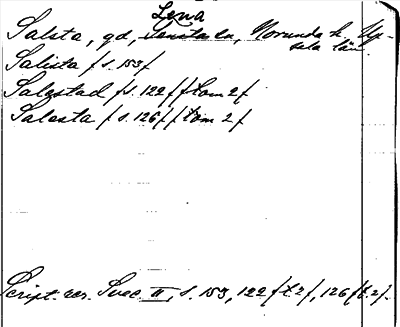 Lena
Salsta, gd, Norunda h. Up-
sala län.
Salista /s. 153/
Salestad /s. 122 / /tom 2/
Salesta /s. 126/ /tom 2/
Script. rer. Svec. II, s. 153, 122 /t. 2/, 126 /t. 2/.